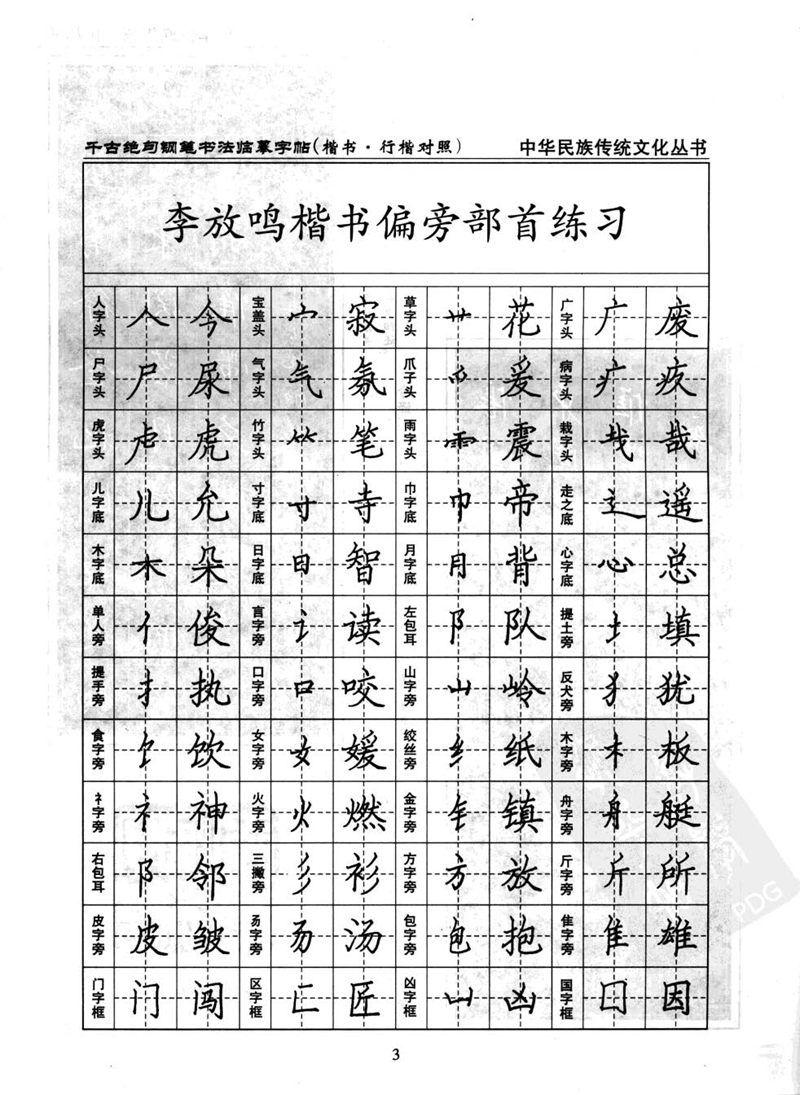 千古绝句钢笔书法临摹字帖(楷书·行楷对照) 中华民族传统文化丛书
李放鸣楷书偏旁部首练习
人字头 人 今 宝盖头 宀 寂 草字头 艹 花 广字头 广 废
尸字头 尸 尿 气字头 气 氛 爪子头 爫 爱 病字头 疒 疫
虎字头 虍 虎 竹字头 𥫗 笔 雨字头 ⻗ 震 栽字头 𢦏 哉
儿字底 儿 允 寸字底 寸 寺 巾字底 巾 帝 走之底 辶 遥
木字底 木 朵 日字底 日 智 月字底 月 背 心字底 心 总
单人旁 亻 俊 言字旁 讠 读 左包耳 阝 队 提土旁 土 填
提手旁 扌 执 口字旁 口 咬 山字旁 山 岭 反犬旁 犭 犹
食字旁 饣 饮 女字旁 女 媛 绞丝旁 纟 纸 木字旁 木 板
礻字旁 礻 神 火字旁 火 燃 金字旁 钅 镇 舟字旁 舟 艇
右包耳 阝 邻 三撇旁 彡 衫 方字旁 方 放 斤字旁 斤 所
皮字旁 皮 皱 昜字旁 𠃓 汤 包字旁 包 抱 隹字旁 隹 雄
门字框 门 闯 区字框 匚 匠 凶字框 凵 凶 国字框 囗 因
3
PDG